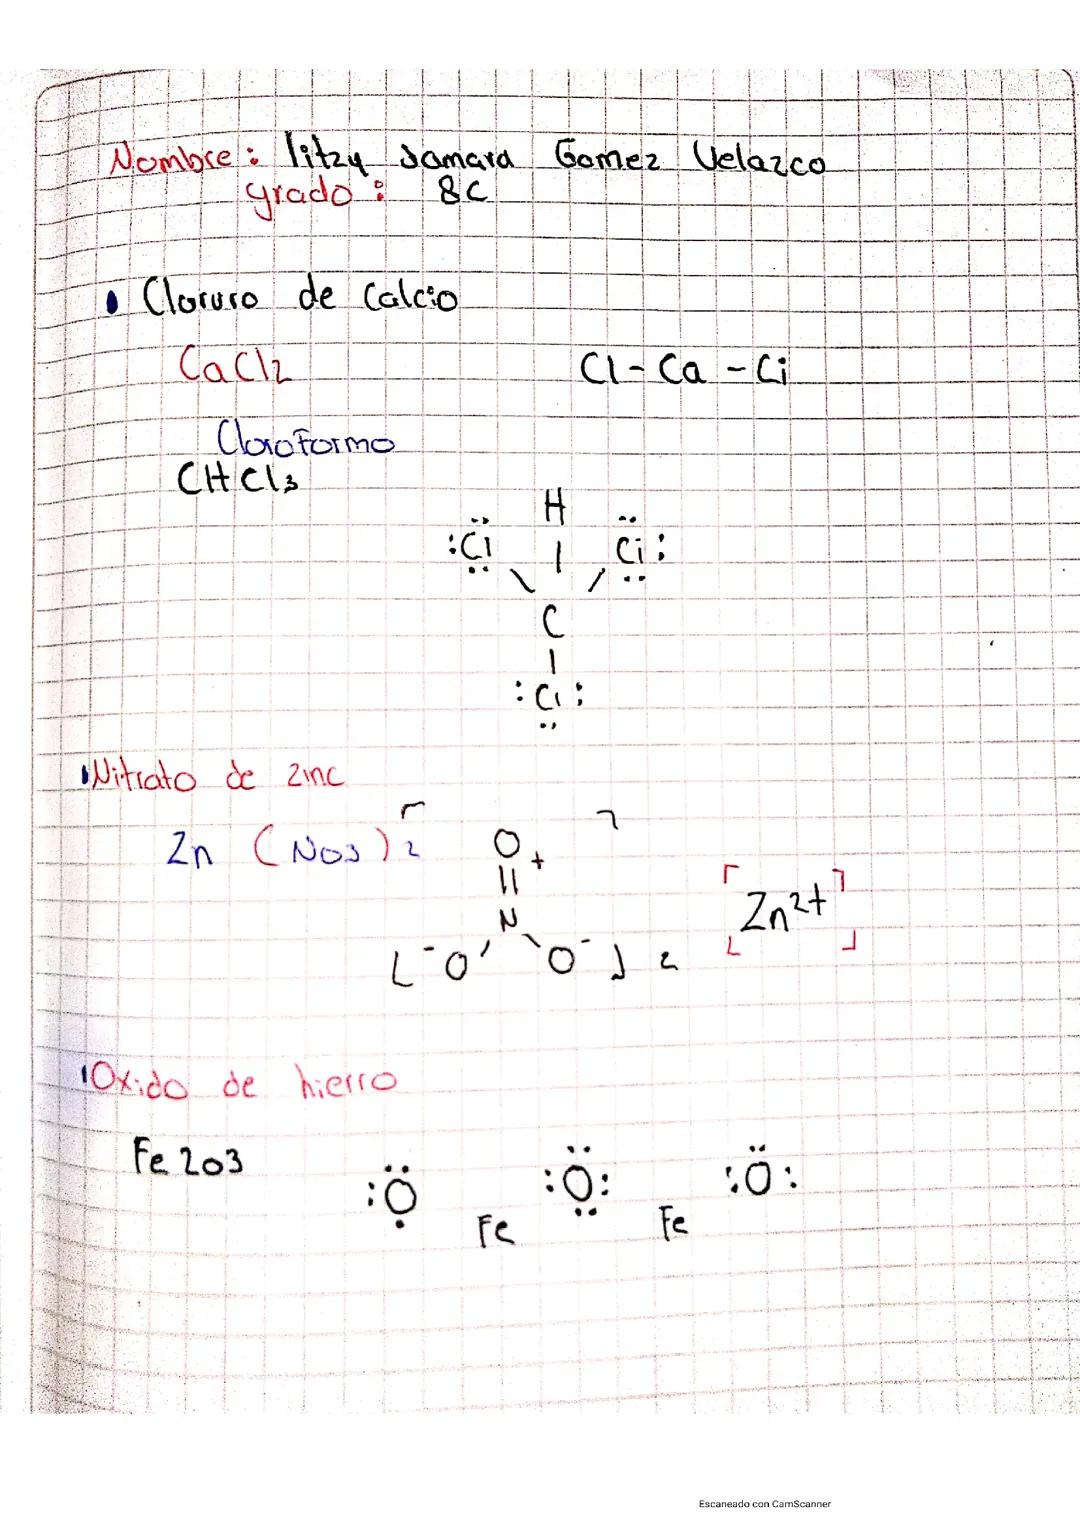 Nombre: Iitzy Samara Gomez Velazco
grado: 8C
Cloruro de Calcio
CaCl2 Cl - Ca - Cl
Cloroformo
CHCl3
H
:Cl Cl:
C
:Cl:
Nitrato de zinc
Zn (NO3)2
O+
N
[-O O-]2 [Zn2+]
Oxido de hierro
Fe2O3
:O :O: :O:
Fe Fe
Escaneado con CamScanner